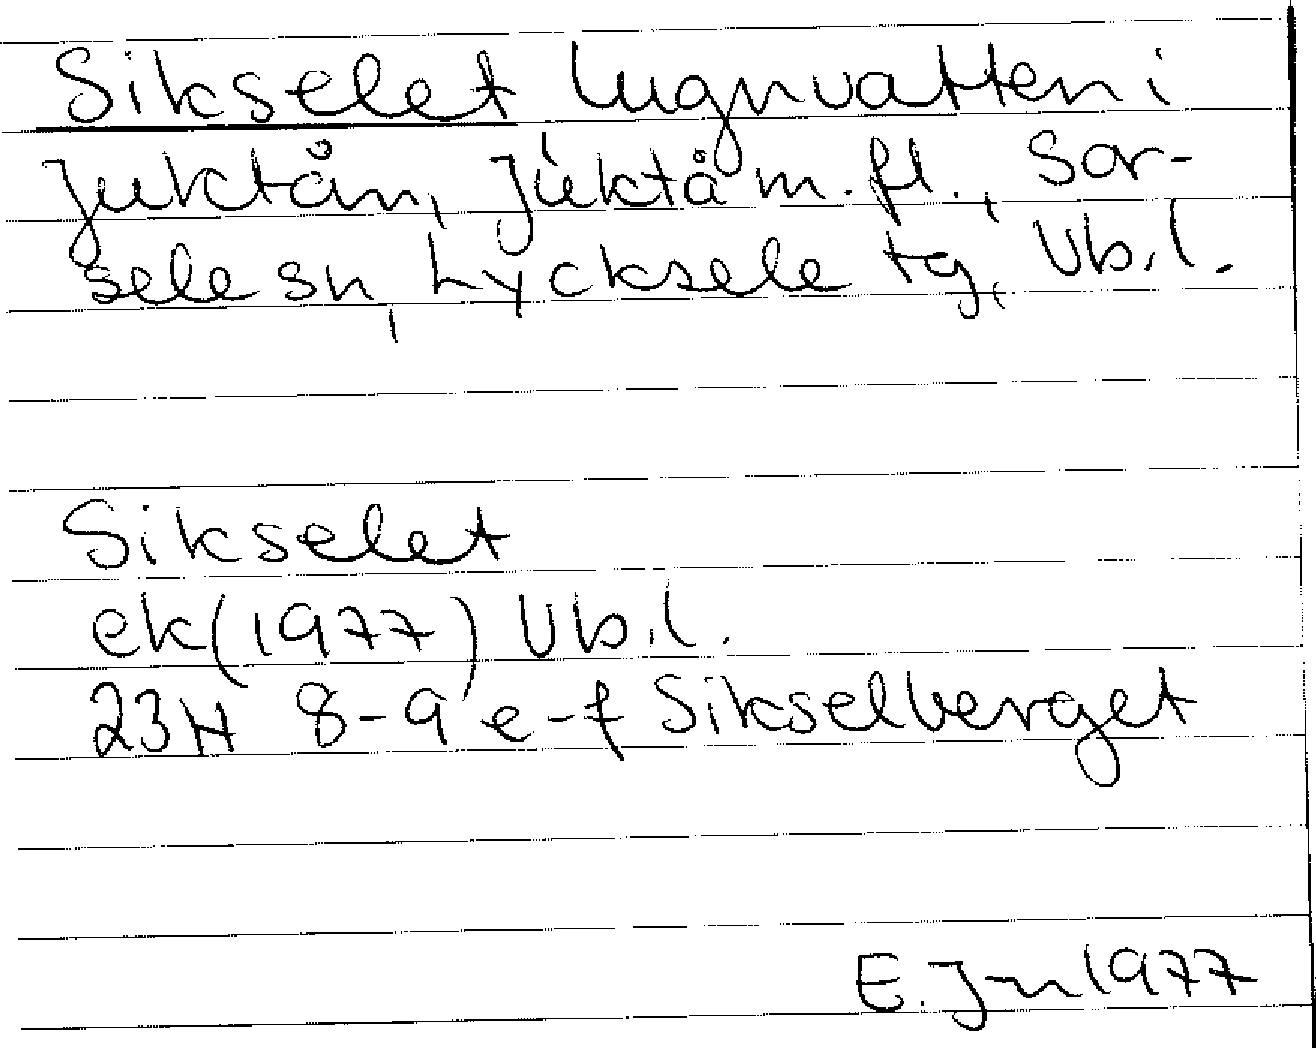 Sikselet lugnvatten i
Juktån, Juktå m.fl., Sor-
sele sn, Lycksele tg, Vb.l.
Sikselet
ek(1977) Vb.l.
23H 8-9 e-f Sikselberget
E. Jn 1977